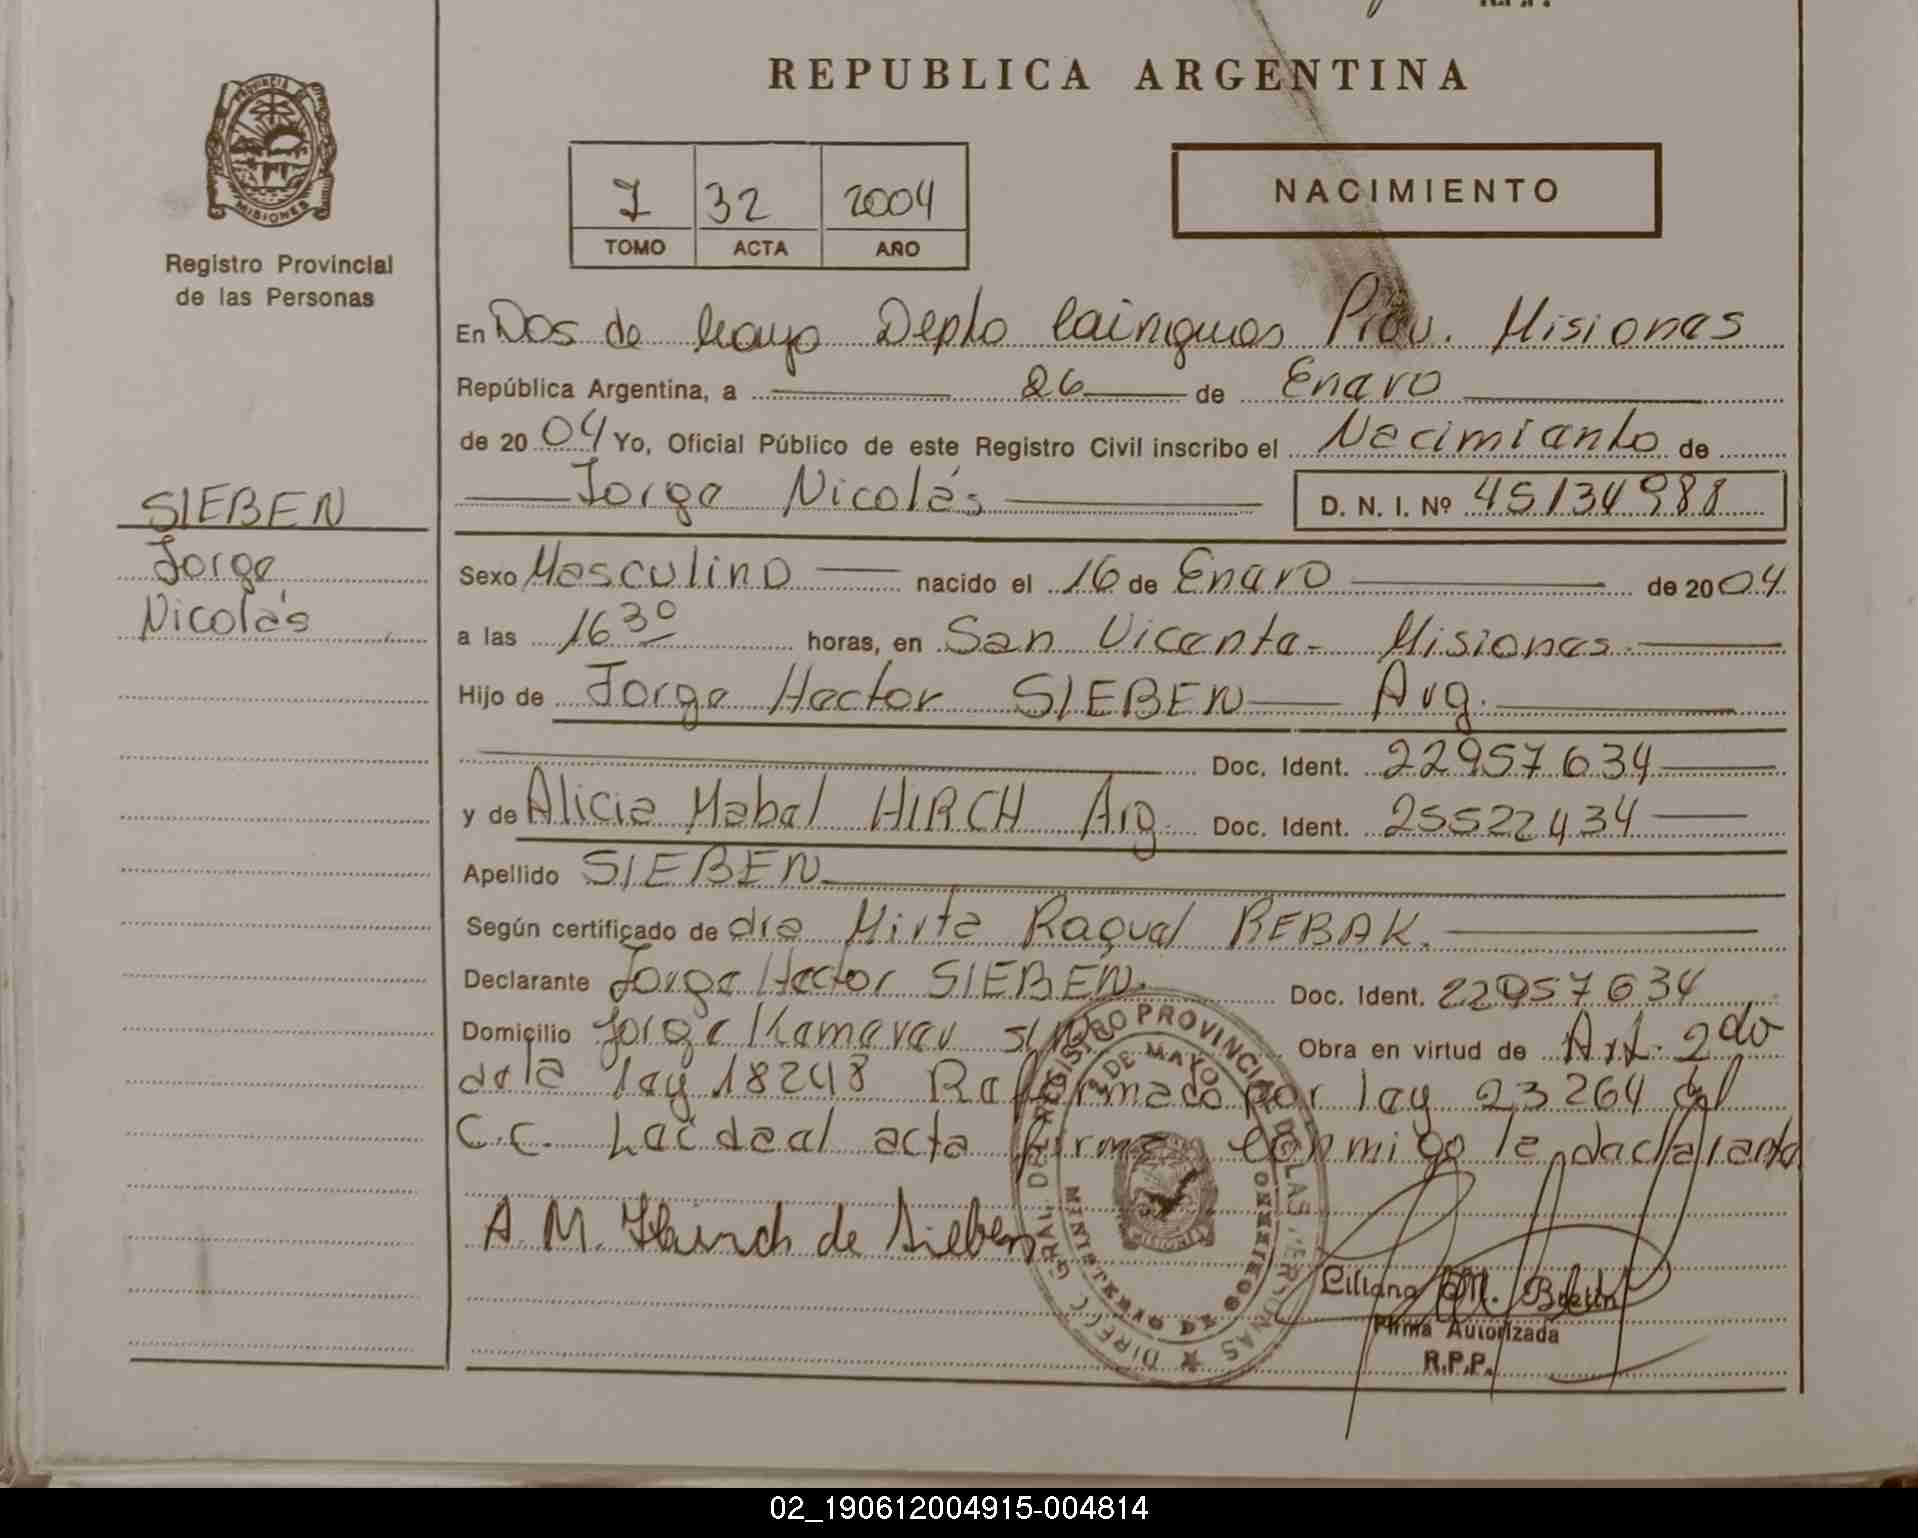 R.P.P.
REPUBLICA ARGENTINA
PROVINCIA DE
MISIONES
Registro Provincial
de las Personas
I 32 2004
TOMO ACTA AÑO
NACIMIENTO
En Dos de Mayo Depto Cainguas Prov. Misiones
República Argentina, a 26 de Enero
de 2004 Yo, Oficial Público de este Registro Civil inscribo el Nacimiento de
Jorge Nicolás D. N. I. Nº 45134988
SIEBEN
Jorge
Nicolás
Sexo Masculino nacido el 16 de Enero de 2004
a las 16 30 horas, en San Vicente - Misiones
Hijo de Jorge Hector SIEBEN Arg.
Doc. Ident. 22957634
y de Alicia Mabel HIRCH Arg. Doc. Ident. 25522434
Apellido SIEBEN
Según certificado de dra Mirta Raquel REBAK.
Declarante Jorge Hector SIEBEN. Doc. Ident. 22957634
Domicilio Jorge s/n Obra en virtud de Art. 2do
de la ley 18248 Reformado por ley 23264 del
C.C. Leída el acta firma conmigo la declarante
A. M. de Sieben
DIRECC. GRAL. DEL REGISTRO PROVINCIAL DE LAS PERSONAS
2 DE MAYO
MINISTERIO DE GOBIERNO
Liliana M.
Firma Autorizada
R.P.P.
02_190612004915-004814